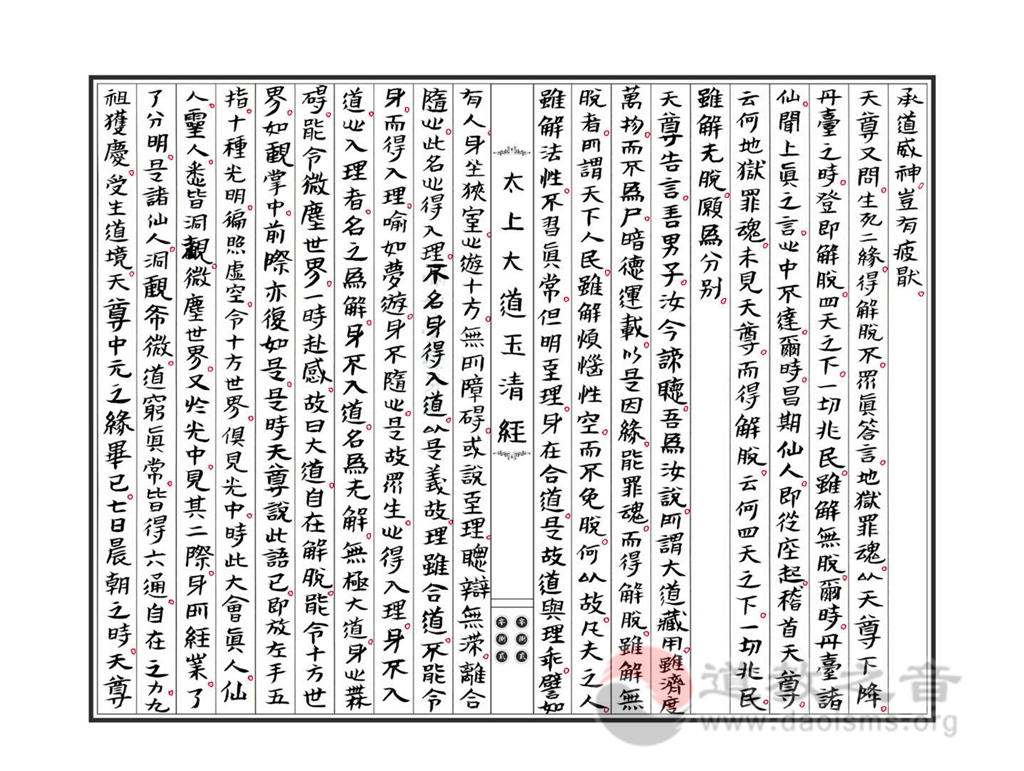 承道威神。豈有疲厭。
天尊又問。生死二緣。得解脫不。眾眞答言。地獄罪魂。以天尊下降
丹臺之時。登即解脫。四天之下。一切兆民。雖解無脫。爾時丹臺諸
仙。聞上眞之言。心中不達。爾時昌期仙人。即從座起。稽首天尊。
云何地獄罪魂。未見天尊。而得解脫。云何四天之下。一切兆民
雖解无脫。願爲分别。
天尊告言。善男子。汝今諦聽。吾爲汝說。所謂大道藏用。雖濟度
萬均。而不爲尸。暗德運載。以是因緣。能罪魂。而得解脫。雖解無
脫者。所謂天下人民。雖解煩惱性空。而不免脫。何以故。凡夫之人。
雖解法性。不習眞常。但明至理。身在合道。是故道與理乖。譬如
太上大道玉清經
有人。身坐狹室。心遊十方。無所障碍。或說至理。聰辯無滯。離合
隨心。此名心得入理。不名身得入道。以是義故。理雖合道。不能令
身。而得入理。喻如夢遊。身不隨心。是故眾生。心得入理。身不入
道。心入理者。名之爲解。身不入道。名爲无解。無極大道。身心無
碍。能令微塵世界。一時赴感。故曰大道。自在解脫。能令十方世
界。如觀掌中。前際亦復如是。是時天尊說此語已。即放左手五
指。十種光明。徧照虛空。令十方世界。俱見光中。時此大會眞人仙
人靈人。悉皆洞觀微塵世界。又於光中。見其二際。身所經業。了
了分明。是諸仙人。洞觀希微。道窮眞常。皆得六通。自在之力。九
祖獲慶。受生道境。天尊中元之緣畢已。七日晨朝之時。天尊
道教之音
www.daoisms.org